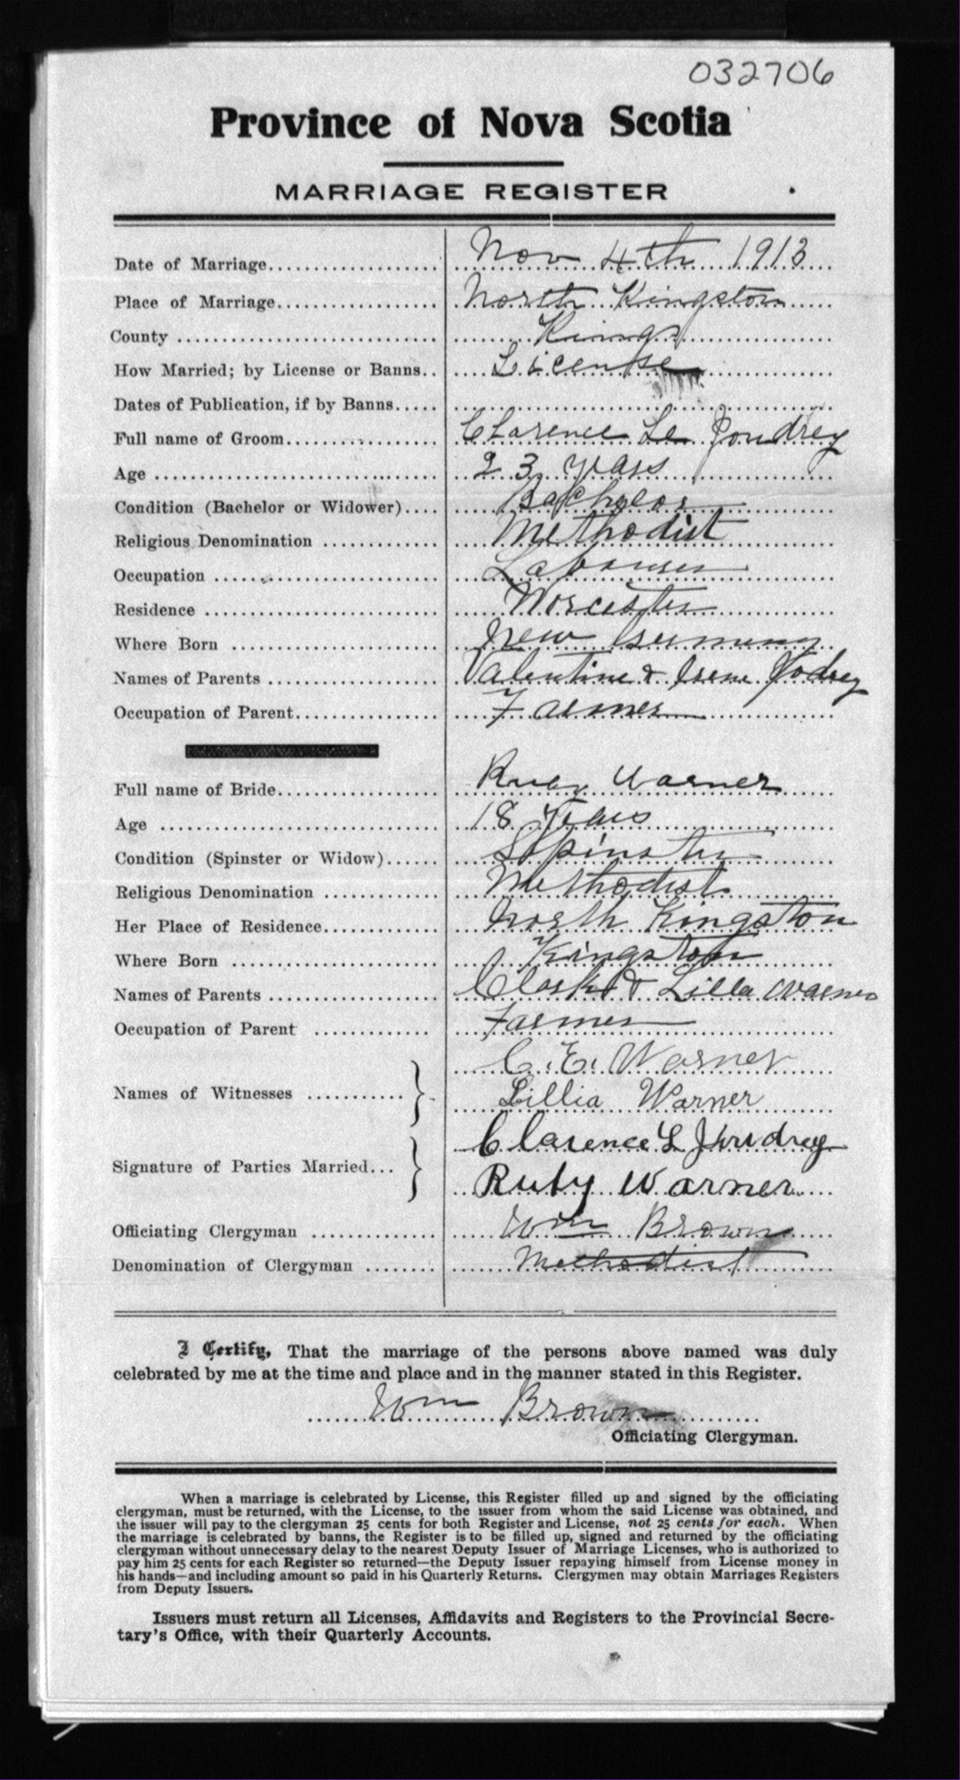 032706
Province of Nova Scotia
MARRIAGE REGISTER
Date of Marriage Nov 4th 1913
Place of Marriage North Kingston
County Kings
How Married; by License or Banns License
Dates of Publication, if by Banns
Full name of Groom Clarence Le Joudrey
Age 23 years
Condition (Bachelor or Widower) Bachelor
Religious Denomination Methodist
Occupation Labourer
Residence Worcester
Where Born New Germany
Names of Parents Valentine & Irene Jodrey
Occupation of Parent Farmer
Full name of Bride Ruby Warner
Age 18 Years
Condition (Spinster or Widow) Spinster
Religious Denomination Methodist
Her Place of Residence North Kingston
Where Born Kingston
Names of Parents & Lilla Warner
Occupation of Parent Farmer
C. E. Warner
Names of Witnesses Lillia Warner
Clarence L Joudrey
Signature of Parties Married Ruby Warner
Officiating Clergyman Wm Brown
Denomination of Clergyman Methodist
I Certify, That the marriage of the persons above named was duly
celebrated by me at the time and place and in the manner stated in this Register.
Wm Brown
Officiating Clergyman.
When a marriage is celebrated by License, this Register filled up and signed by the officiating
clergyman, must be returned, with the License, to the issuer from whom the said License was obtained, and
the issuer will pay to the clergyman 25 cents for both Register and License, not 25 cents for each. When
the marriage is celebrated by banns, the Register is to be filled up, signed and returned by the officiating
clergyman without unnecessary delay to the nearest Deputy Issuer of Marriage Licenses, who is authorized to
pay him 25 cents for each Register so returned—the Deputy Issuer repaying himself from License money in
his hands—and including amount so paid in his Quarterly Returns. Clergymen may obtain Marriages Registers
from Deputy Issuers.
Issuers must return all Licenses, Affidavits and Registers to the Provincial Secre-
tary's Office, with their Quarterly Accounts.